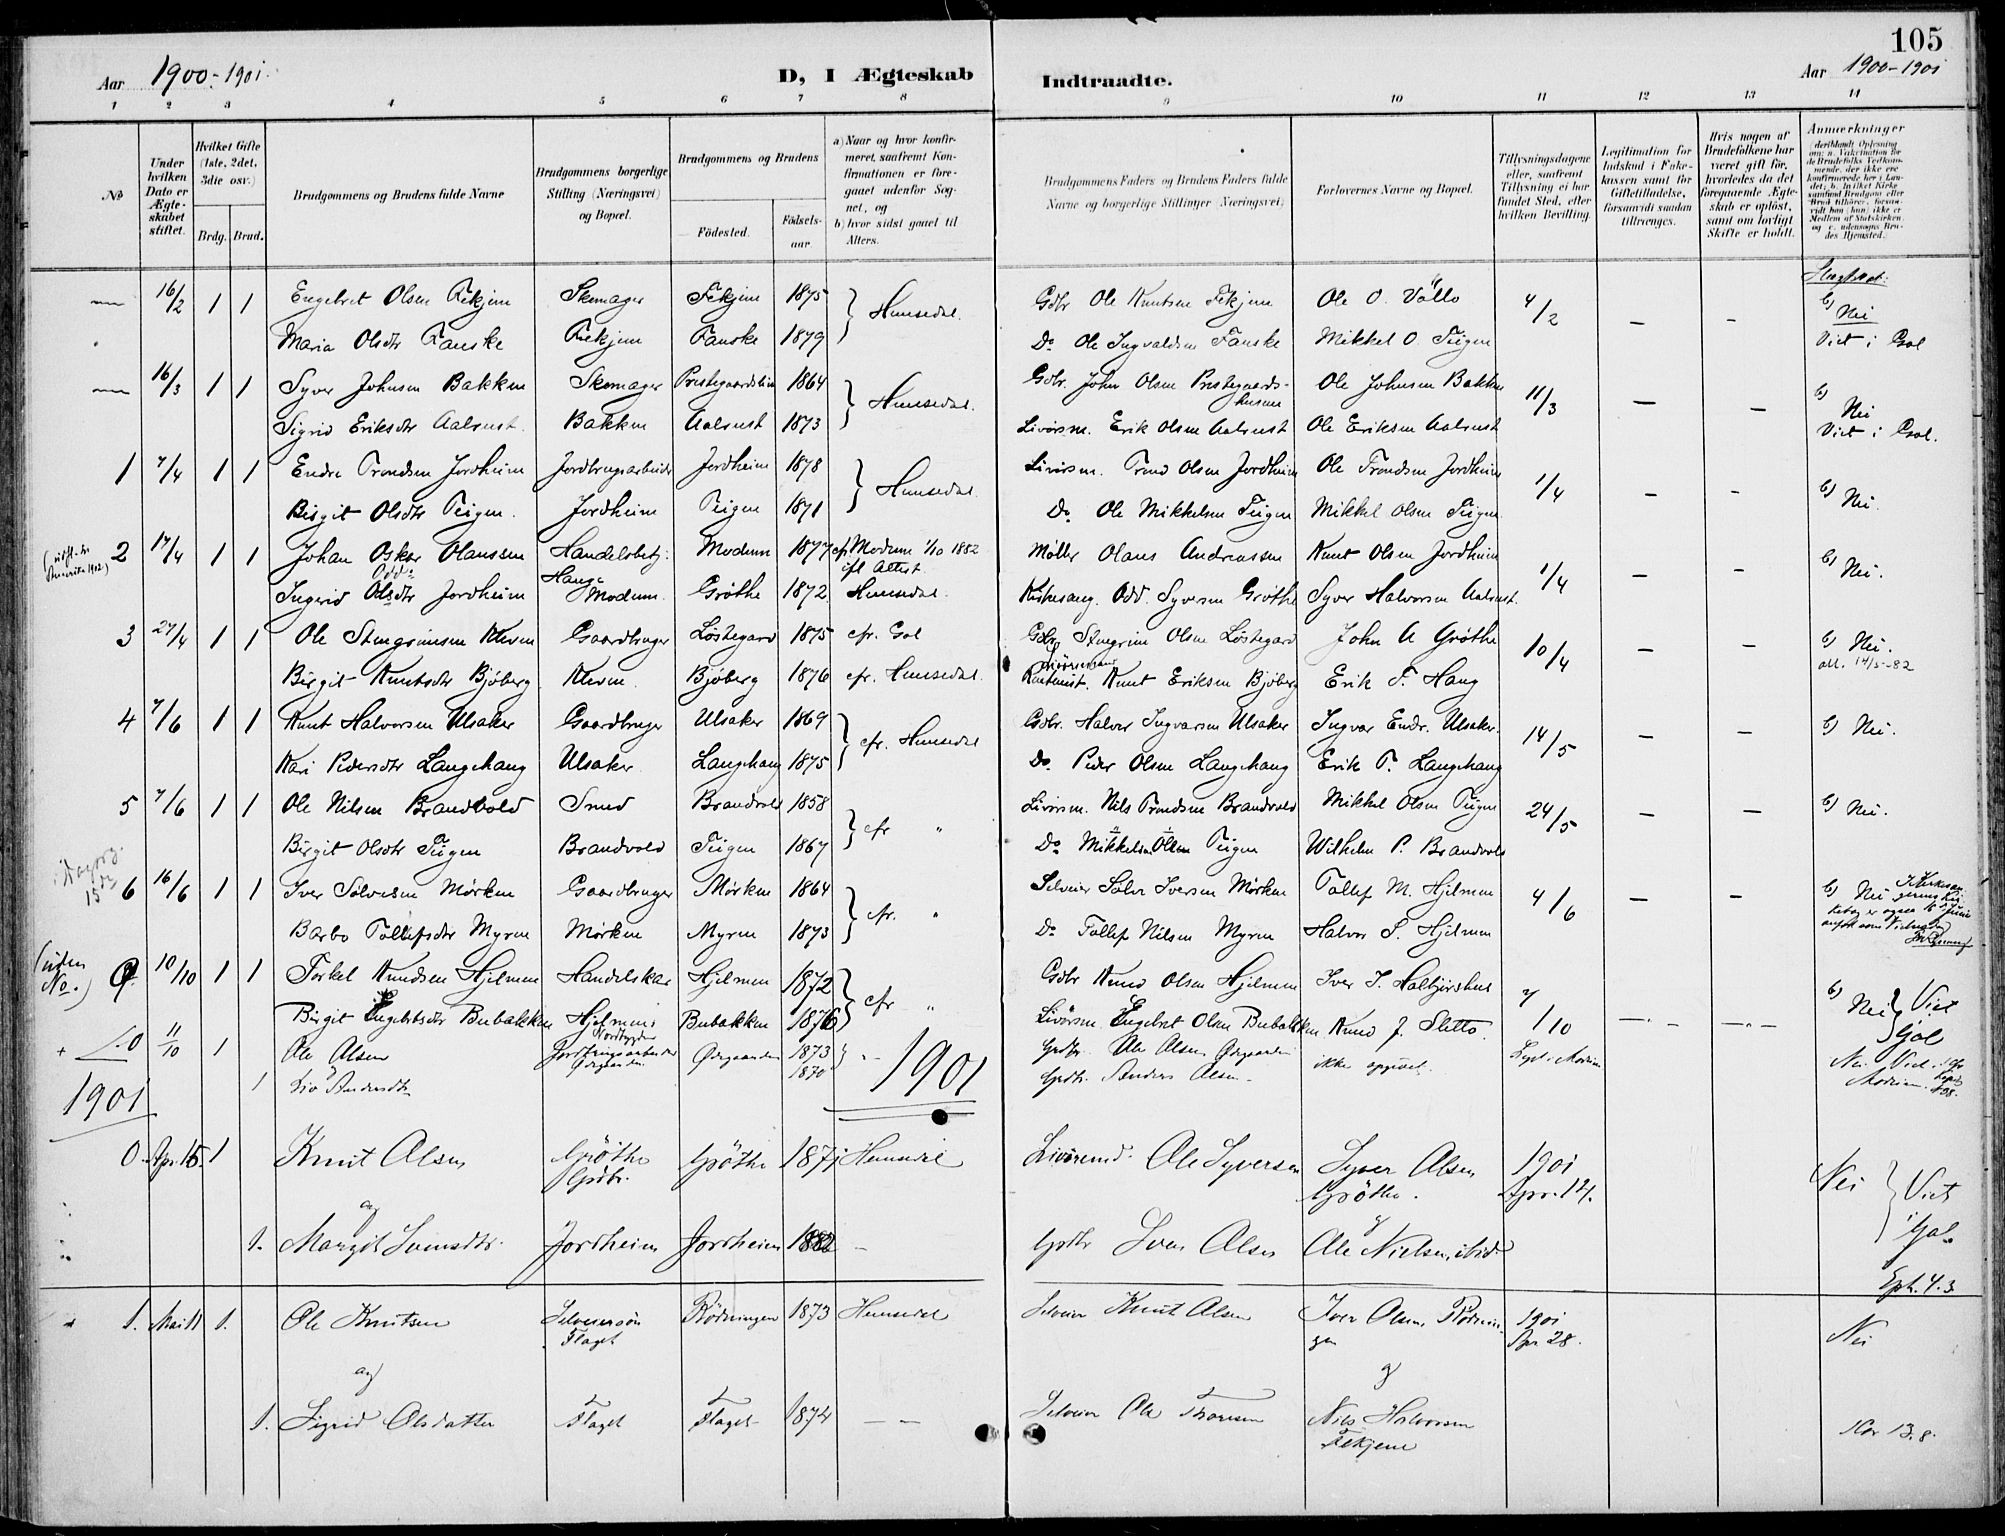 105
Aar 1900-1901.
D, I Ægteskab Indtraadte.
Aar 1900-1901
1 2 3 4 5 6 7 8 9 10 11 12 13 14
No
Under hvilken Dato er Ægteskabet stiftet.
Hvilket Gifte (1ste, 2det, 3die osv.)
Brdg. Brud.
Brudgommens og Brudens fulde Navne
Brudgommens borgerlige Stilling (Næringsvei) og Bopæl.
Brudgommens og Brudens
Fødested. Fødselsaar
a) Naar og hvor konfirmeret, saafremt Konfirmationen er foregaaet udenfor Sognet, og
b) hvor sidst gaaet til Alters.
Brudgommens Faders og Brudens Faders fulde Navne og borgerlige Stillinger (Næringsvei)
Forlovernes Navne og Bopæl.
Tillysningsdagene eller, saafremt Tillysning ei har fundet Sted, efter hvilken Bevilling.
Legitimation for Indskud i Enkekassen samt for Giftetilladelse, forsaavidt saadan tiltrænges.
Hvis nogen af Brudefolkene har været gift før, hvorledes da det foregaaende Ægteskab er opløst, samt om lovligt Skifte er holdt.
Anmærkninger
(deriblandt Oplysning om: a. Vakcination for de Brudefolks Vedkommende, der ikke ere konfirmerede her i Landet; b. hvilket Kirkesamfund Brudgom eller Brud tilhører, forsaavidt han (hun) ikke er Medlem af Statskirken, og c. udensogns Brudes Hjemsted.
16/2 1 1 Engebret Olsen Fekjen Skomager Fekjene 1875 Hemsedal. Gdbr Ole Knutsen Fekjene Ole O. Vøllo 4/2 – – b) Nei
Maria Olsdtr Fauske Fekjene Fauske 1879 Do Ole Ingvaldsen Fauske Mikkel O. Tuigen Viet i Gol
16/3 1 1 Syver Johnsen Bakken Skomager 1864 Hemsedal. Gdbr. John Olsen Prestegaardshusene Ole Johnsen Bakken 11/3 – – b) Nei
Sigrid Eriksdtr Aalrust. Bakken Aalrust 1873 Livørsm. Erik Olsen Aalrust Ole Eriksen Aalrust Viet i Gol.
1 7/4 1 1 Endre Trondsen Jordheim Jordbrugsarbeider Jordheim 1878 Hemsedal. Livørsm. Trond Olsen Jordheim Ole Trondsen Jordheim 1/4 – – b) Nei.
Birgit Olsdtr Tuigen. Jordheim Tuigen 1871 Do Ole Mikkelsen Tuigen Mikkel Olsen Tuigen
2 17/4 1 1 Johan Oskar Olaussen Handelsbetj. Modum 1877 cfr. Modum 1/10 1882 ifl Attest. Møller Olaus Andreassen Knut Olsen Jordheim 1/4 – – b) Nei.
Ingerid Odds Olsdtr Jordheim Modum. Grøthe 1872 Hemsedal. Kirkesang. Odd Syversen Grøthe Syver Halvorsen Aalrust.
3 27/4 1 1 Ole Stengrimsen Kleven Gaardbruger Løstegard 1875 cfr. Gol Gdbr Stengrim Olsen Løstegard John A Grøthe 10/4 – – b) Nei.
Birgit Knutsdtr Bjøberg Kleven. Bjøberg 1876 cfr. Hemsedal. Knut Eriksen Bjøberg Erik T. Haug att. 14/5-82
4 7/6 1 1 Knut Halvorsen Ulsaker Gaardbruger Ulsaker 1869 cfr. Hemsedal Gdbr. Halvor Ingvarsen Ulsaker Ingvar Endr. Ulsaker. 14/5 – – b) Nei.
Kari Pedersdtr Langehaug Ulsaker Langehaug 1875 Do. Peder Olsen Langehaug Erik P. Langehaug
5 7/6 1 1 Ole Nilsen Brandvold Smed Brandvold 1858 cfr " Livørsm. Nils Trondsen Brandvold Mikkel Olsen Tuigen 24/5 – – b) Nei.
Birgit Olsdtr Tuigen Brandvold Tuigen 1867 Do Mikkelsen Olsen Tuigen Wilhelm P. Brandvold
6 16/6 1 1 Iver Sølvesen Mørken Gaardbruger Mørken 1864 cfr. " Selveier Sølve Iversen Mørken Tollef M. Hjelmen 4/6 – – b) Nei
Barbo Tollefsdtr Myren Mørken Myren 1873 Do Tollef Nilsen Myren Halvor S. Hjelmen
(uden No.) 10/10 1 1 Torkel Knudsen Hjelmen Handelskar Hjelmen 1872 cfr " Gdbr Knud Olsen Hjelmen Iver T. Halbjørshus 7/10 – – b) Nei Viet i Gol
Birgit Engebretsdtr Bubakken Hjelmen Bubakken 1876 Livørsm. Engebret Olsen Bubakken Knud J. Sletto
+ 0 11/10 1 Ole Olsen Jordbrugsarbeider Ødegaarden Ødegaarden 1873 Gdbr. Ole Olsen Ødegaarden ikke opgivet. Nei Viet
1 Liv Andersdtr 1870 Gdbr. Anders Olsen
1901 1901
0. Apr. 15. 1 Knut Olsen Grøthe Gdbr. Grøthe 1871 Hemsedal Livørsmd. Ole Syversen Syver Olsen Grøthe. 1901 Apr. 14. Nei Viet i Gol
og
1. Margit Svensdtr. Jordheim Jordheim 1882 – Gdbr Sven Olsen og Ole Nielsen, ibid
Eph. 4.3
1. Mai 11 1. Ole Knutsen Selveiersøn Flaget Rødningen 1873 Hemsedal Selveier Knut Olsen Iver Olsen Rødningen 1901 Apr 28. Nei
og og
1. Sigrid Olsdatter Flaget Flaget 1874 – – Selveier Ole Thoresen Nils Halvorsen Fekjene
Kor 13.8.